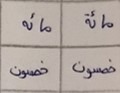 مائة مائه
خمسون خمسون